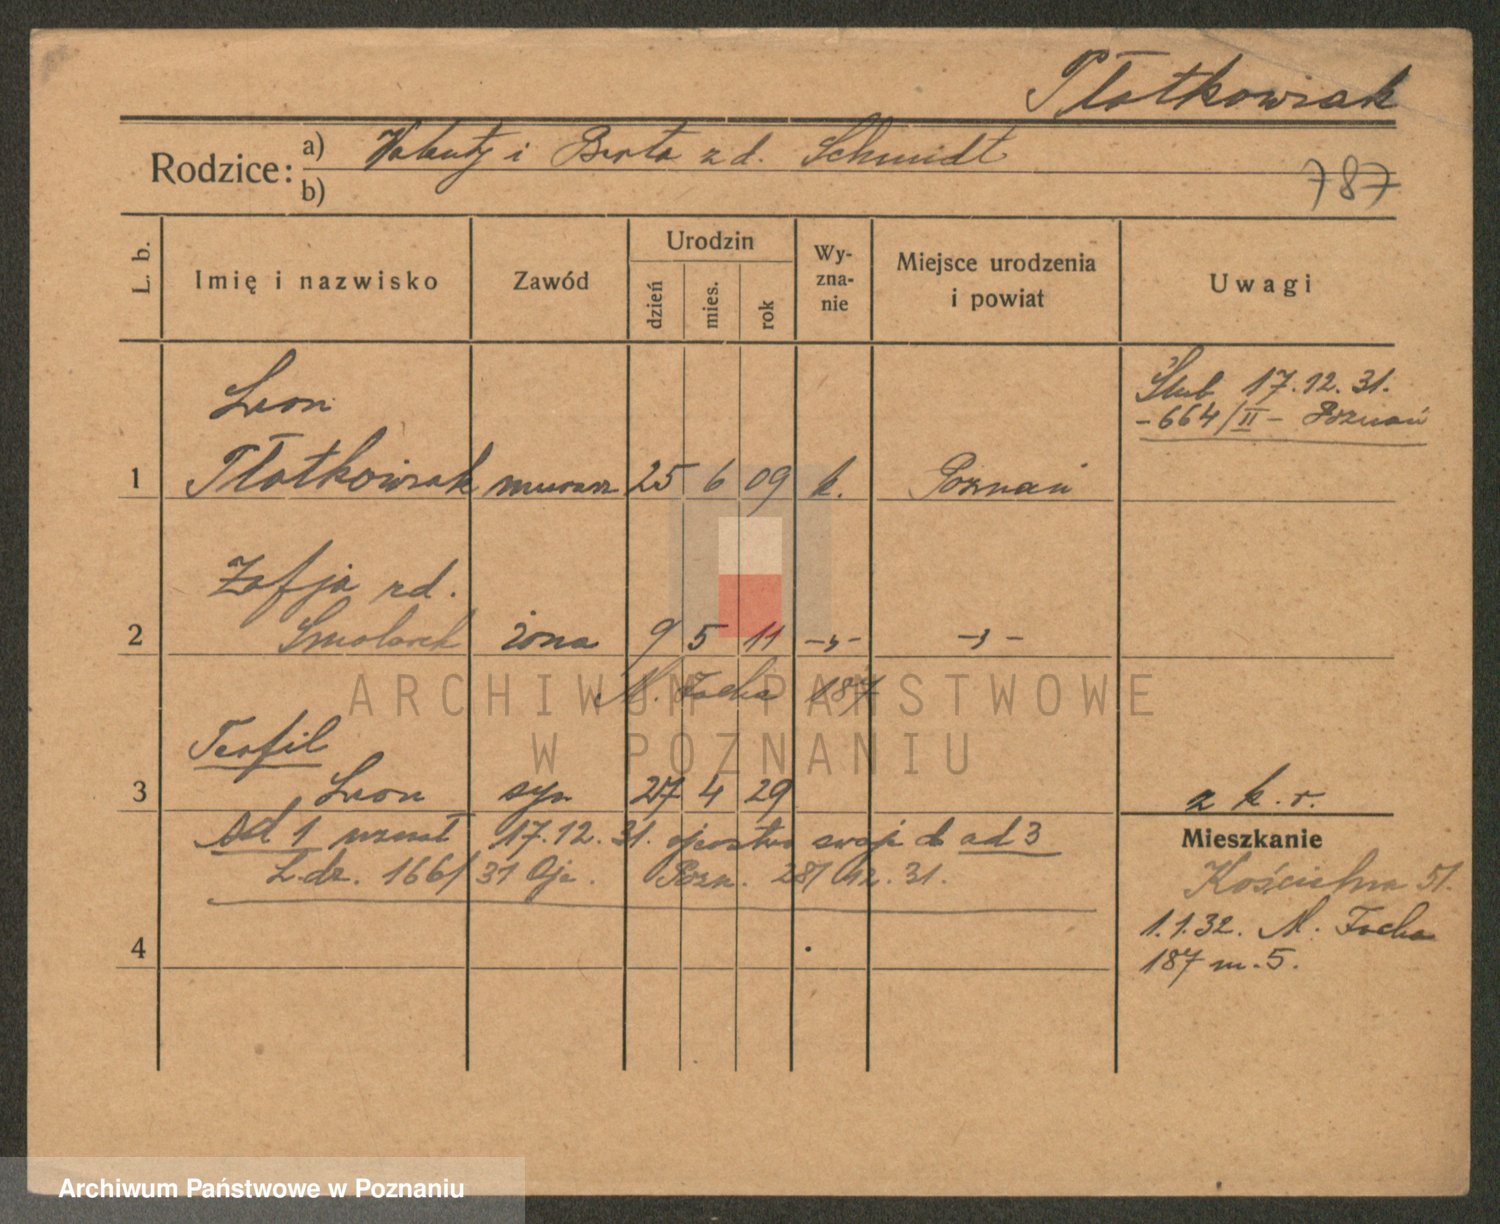 Płotkowiak
Rodzice: a) Walenty i Berta z d. Schmidt
b)
787
L. b.
Imię i nazwisko
Zawód
Urodzin
dzień
mies.
rok
Wy-
zna-
nie
Miejsce urodzenia
i powiat
Uwagi
Leon
Ślub 17.12.31.
-664/II- Poznań
1 Płotkowiak murarz 25 6 09 k. Poznań
Zofja zd.
2 Smolarek żona 9 5 11 -„- -„-
M. Focha 187
Teofil
3 Leon syn 27 4 29
z k. r.
ad 1 uznał 17.12.31. ojcostwo swoje do ad 3
L.dz. 1661/31 Op. Pozn. 28/12.31.
Mieszkanie
Kościelna 51.
1.1.32. M. Focha
187 m. 5.
4
ARCHIWUM PAŃSTWOWE
W POZNANIU
Archiwum Państwowe w Poznaniu